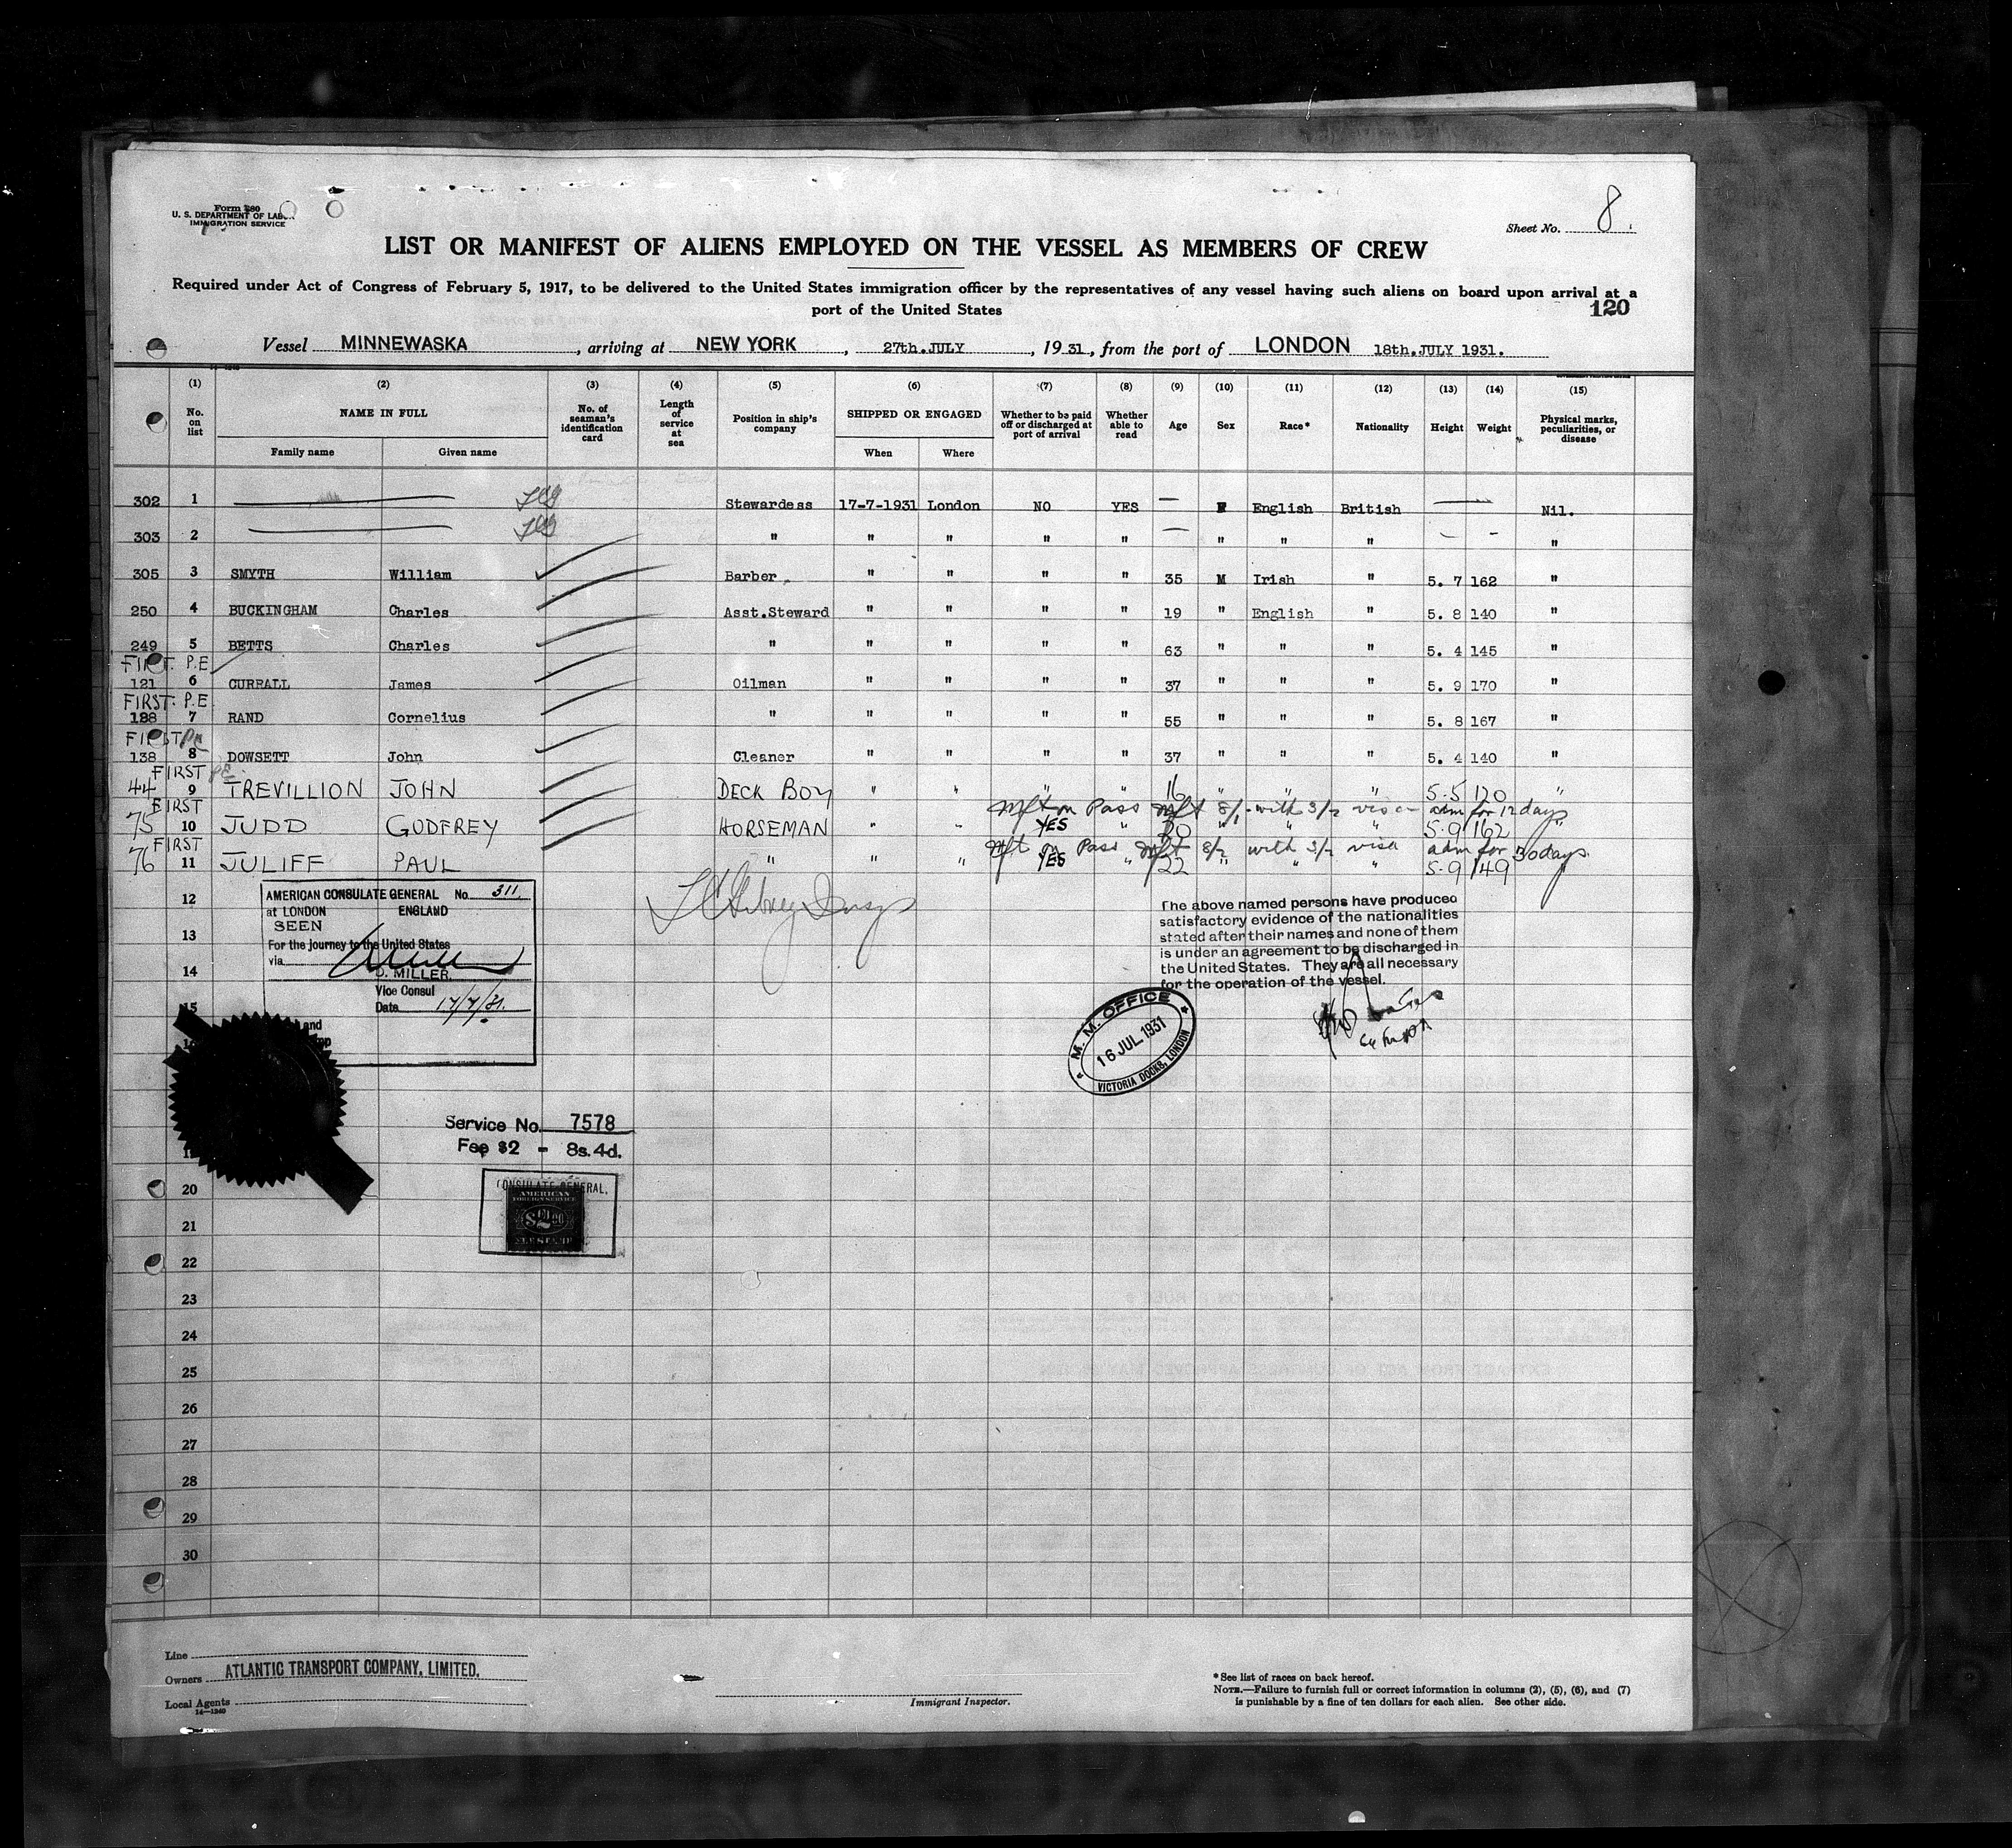 Form 680
U. S. DEPARTMENT OF LABOR
IMMIGRATION SERVICE
Sheet No. 8
LIST OR MANIFEST OF ALIENS EMPLOYED ON THE VESSEL AS MEMBERS OF CREW
Required under Act of Congress of February 5, 1917, to be delivered to the United States immigration officer by the representatives of any vessel having such aliens on board upon arrival at a
port of the United States
120
Vessel MINNEWASKA, arriving at NEW YORK, 27th.JULY, 1931, from the port of LONDON 18th.JULY 1931.
(1) (2) (3) (4) (5) (6) (7) (8) (9) (10) (11) (12) (13) (14) (15)
No. on list NAME IN FULL No. of seaman's identification card Length of service at sea Position in ship's company SHIPPED OR ENGAGED Whether to be paid off or discharged at port of arrival Whether able to read Age Sex Race* Nationality Height Weight Physical marks, peculiarities, or disease
Family name Given name When Where
302 1 Stewardess 17-7-1931 London NO YES — F English British — Nil.
303 2 " " " " " — " " " - - "
305 3 SMYTH William Barber " " " " 35 M Irish " 5. 7 162 "
250 4 BUCKINGHAM Charles Asst.Steward " " " " 19 " English " 5. 8 140 "
249 5 BETTS Charles " " " " " 63 " " " 5. 4 145 "
FIRST. P.E
121 6 CURRALL James Oilman " " " " 37 " " " 5. 9 170 "
FIRST. P.E
128 7 RAND Cornelius " " " " " 55 " " " 5. 8 167 "
FIRST PE
138 8 DOWSETT John Cleaner " " " " 37 " " " 5. 4 140 "
FIRST PE
44 9 TREVILLION JOHN DECK BOY " " " " 16 " " " 5.5 120 "
FIRST Mft on Pass Mft 8/1 with 3/2 visa adm for 12 days
75 10 JUDD GODFREY HORSEMAN " " YES " 20 " " " 5.9 162 "
FIRST Mft on Pass Mft 8/2 with 3/2 visa adm for 30 days
76 11 JULIFF PAUL " " " YES " 22 " " " 5.9 149 "
12
13
14
15
AMERICAN CONSULATE GENERAL No. 311
at LONDON ENGLAND
SEEN
For the journey to the United States
via
D. MILLER
Vice Consul
Date 17/7/31.
and
The above named persons have produced
satisfactory evidence of the nationalities
stated after their names and none of them
is under an agreement to be discharged in
the United States. They are all necessary
for the operation of the vessel.
M. M. OFFICE
16 JUL 1931
VICTORIA DOCKS, LONDON
Service No. 7578
Fee $2 - 8s. 4d.
CONSULATE GENERAL,
AMERICAN
FOREIGN SERVICE
$2.00
20
21
22
23
24
25
26
27
28
29
30
Line
Owners ATLANTIC TRANSPORT COMPANY, LIMITED.
Local Agents
14—1240
Immigrant Inspector.
* See list of races on back hereof.
NOTE.—Failure to furnish full or correct information in columns (2), (5), (6), and (7)
is punishable by a fine of ten dollars for each alien. See other side.